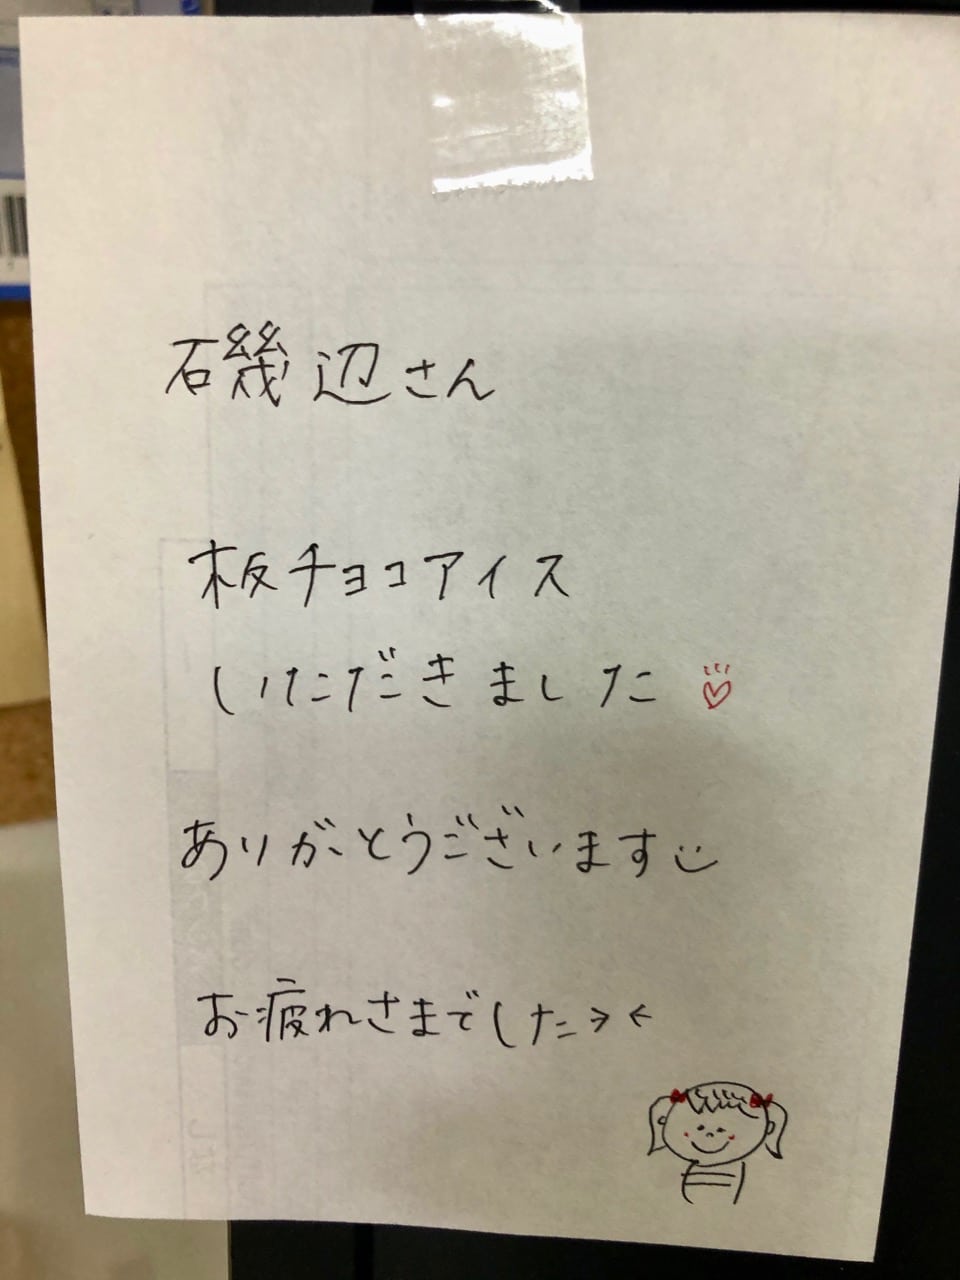 磯辺さん
板チョコアイス
いただきました
ありがとうございます
お疲れさまでした